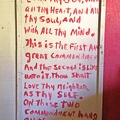 all thy Heart, And all
thy Soul, And
With All Thy Mind.
This is the First And
great Commandment
And the Second is Like
unto it. Thou Shalt
Love Thy Neighbor
As Thy Self.
On These Two
Commandment hang